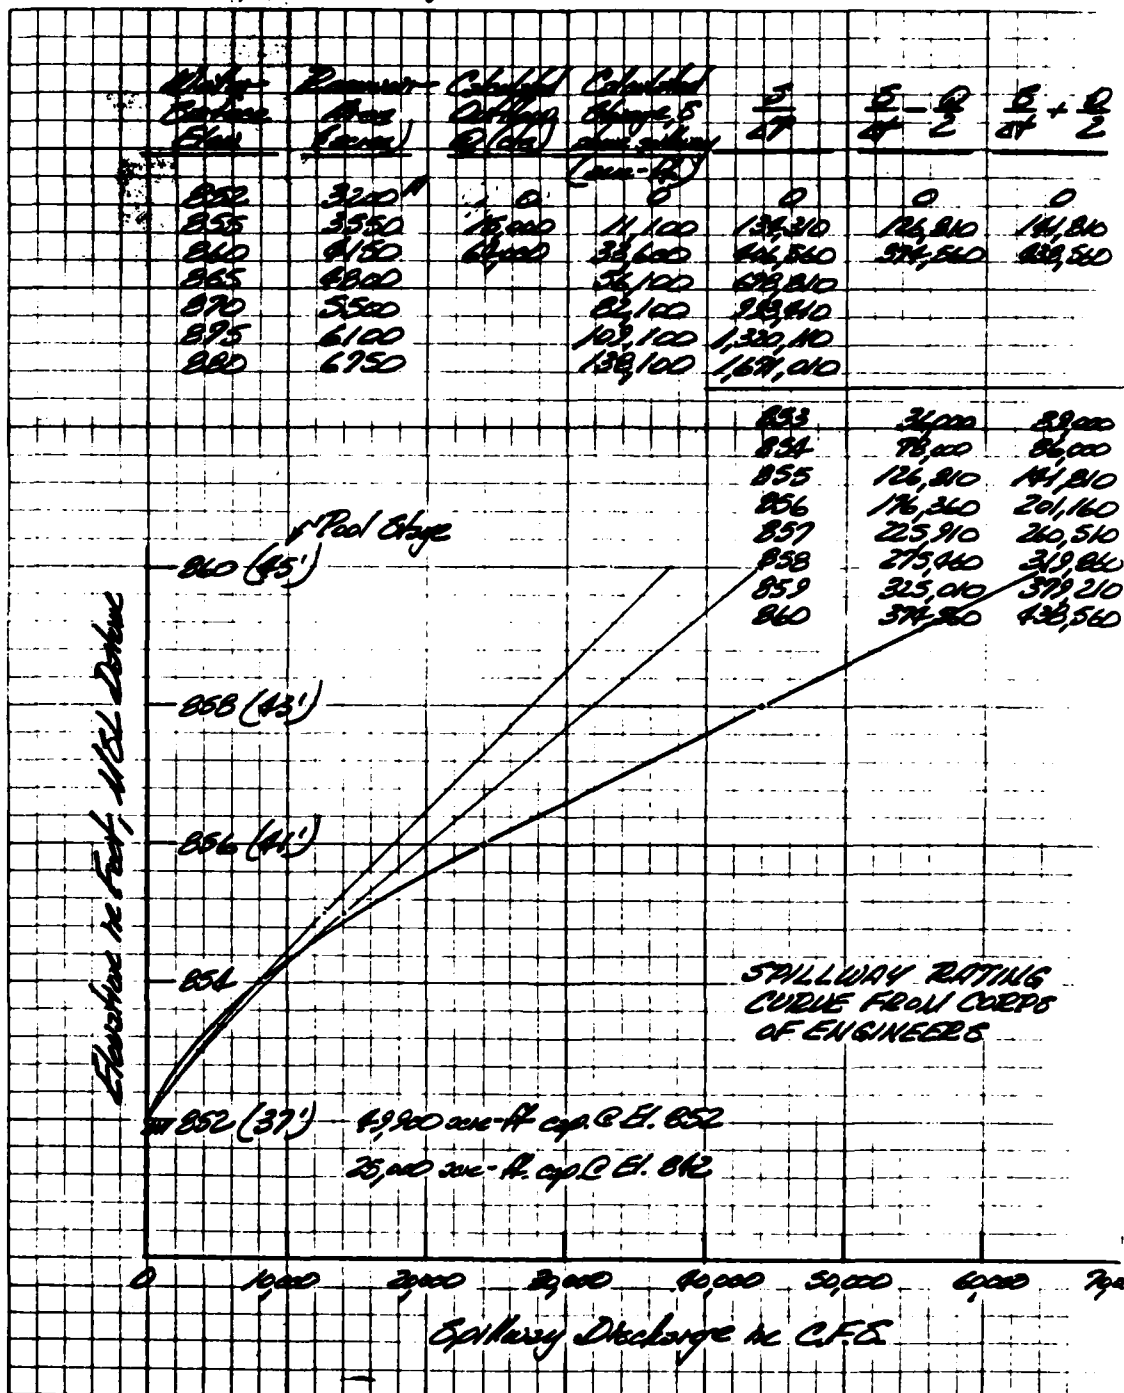 Water Surface Elev. Reservoir Area (acres) Calculated Outflow Q (cfs) Calculated Storage, S above spillway (acre-ft) S/ΔT S/ΔT - Q/2 S/ΔT + Q/2
852 3200 0 0 0 0 0
855 3550 15,000 11,100 134,310 126,810 141,810
860 4150 64,000 33,600 406,560 374,560 438,560
865 4800 56,100 678,810
870 5500 82,100
875 6100 109,100 1,320,110
880 6750 138,100 1,671,010
853 36,000 39,000
854 78,000 86,000
855 126,810 141,810
856 176,360 201,160
857 225,910 260,510
858 275,460 319,860
859 325,010 379,210
860 374,560 438,560
Pool Stage
860 (45')
858 (43')
856 (41')
854
852 (37')
Elevation in Feet, MSL Datum
SPILLWAY RATING
CURVE FROM CORPS
OF ENGINEERS
49,900 acre-ft cap. @ El. 852
25,000 acre-ft. cap. @ El. 842
0 10,000 20,000 30,000 40,000 50,000 60,000
Spillway Discharge in C.F.S.